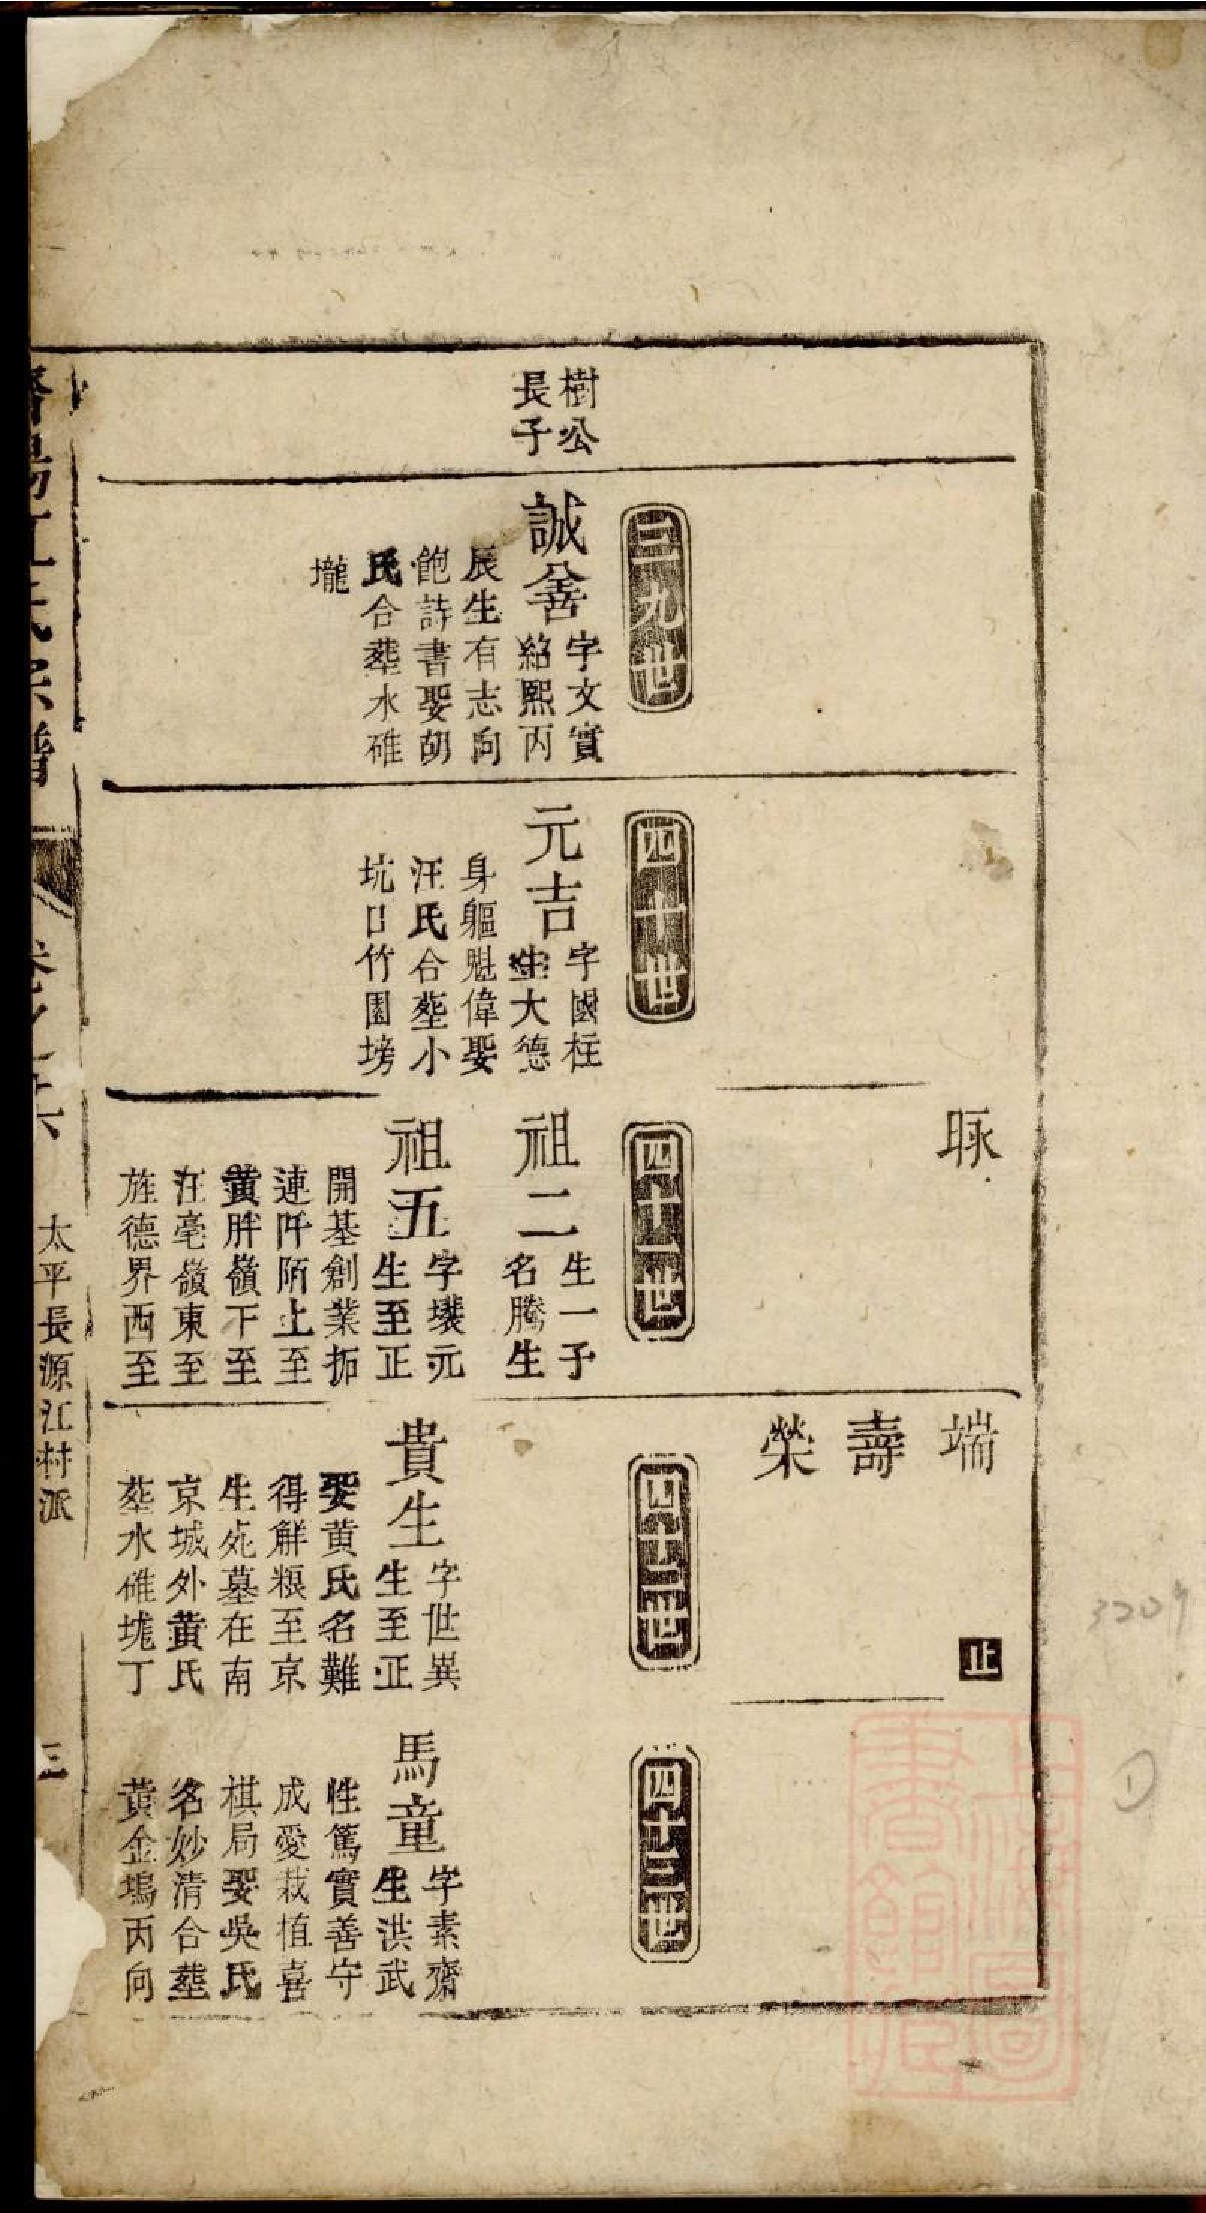 昹
端
壽
榮
止
三九世
四十世
四十一世
四十二世
四十三世
樹公
長子
誠譱
字文實
紹熙丙
辰生有志向
飽詩書娶胡
氏合塟水碓
壠
元吉
字國柱
生大德
身軀魁偉娶
汪氏合塟小
坑口竹園塝
祖二
生一子
名騰生
祖五
字㙲元
生至正
開基創業拓
連阡陌上至
黄胖嶺下至
汪亳嶺東至
旌德界西至
貴生
字世異
生至正
娶黄氏名難
得解糧至京
生死墓在南
京城外黄氏
塟水碓垅丁
馬童
字素齋
生洪武
性篤實善守
成愛栽植喜
棋局娶吳氏
名妙清合塟
黄金塢丙向
濟陽江氏宗譜
卷之十六
太平長源江村派
三
3209